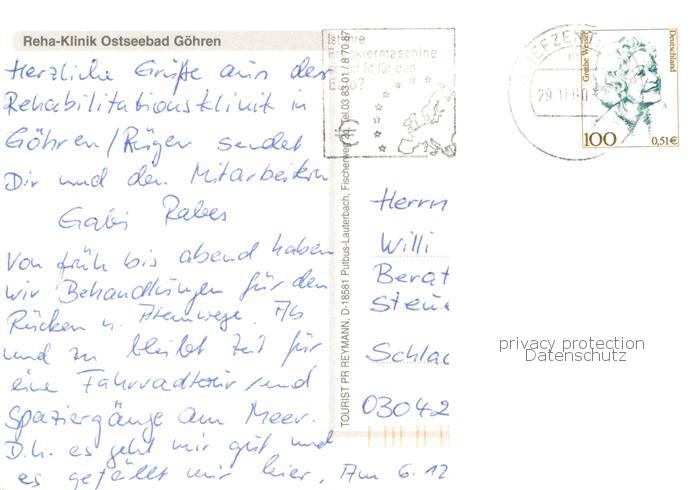 Reha-Klinik Ostseebad Göhren
Herzliche Grüße aus der
Rehabilitationsklinik in
Göhren/Rügen sendet
Dir und den Mitarbeitern
Gabi Rabes
Von früh bis abend haben
wir Behandlungen für den
Rücken u. Atemwege. Ab
und zu bleibt Zeit für
eine Fahrradtour und
Spaziergänge am Meer.
D.h. es geht mir gut und
es gefällt mir hier. Am 6.12
TOURIST PR REYMANN, D-18581 Putbus-Lauterbach, Fischerweg Tel. 03 83 01 / 8 70 87
Ist Ihre
Frankiermaschine
fit für den
Euro?
BRIEFZENTRUM
29.11.00
Grethe Weiser
Deutschland
100
0,51€
Herrn
Willi
Berat
Steue
Schlac
03042
privacy protection
Datenschutz